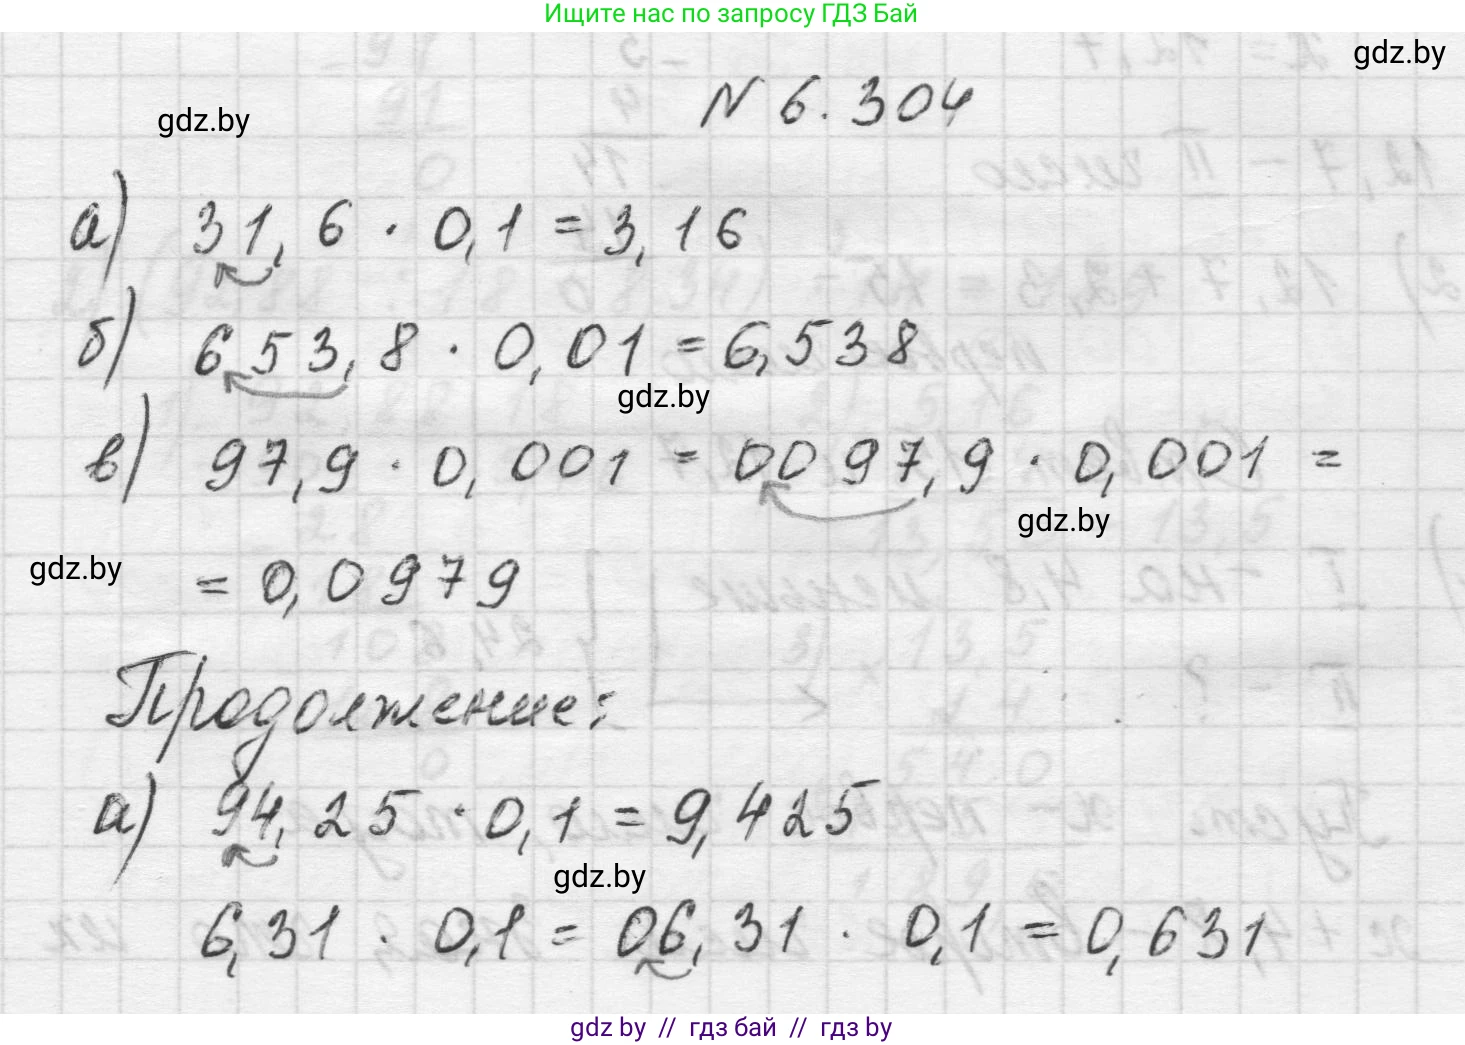 Ищите нас по запросу ГДЗ Бай
gdz.by
№ 6.304
gdz.by
а) 31,6 · 0,1 = 3,16
б) 653,8 · 0,01 = 6,538
gdz.by
в) 97,9 · 0,001 = 0097,9 · 0,001 =
gdz.by
gdz.by
= 0,0979
Продолжение:
а) 94,25 · 0,1 = 9,425
gdz.by
6,31 · 0,1 = 06,31 · 0,1 = 0,631
gdz by // гдз бай // gdz by